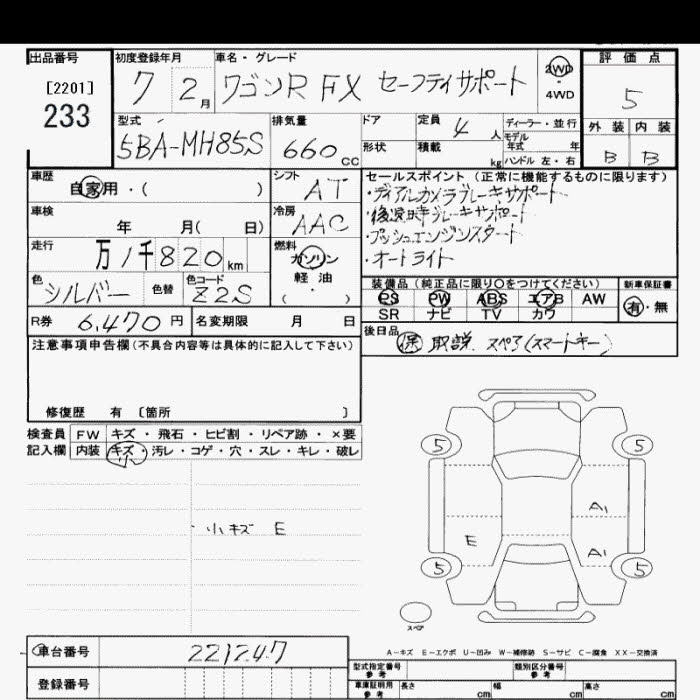 出品番号 初度登録年月 車名・グレード 評価点
[2201] 7 2月 ワゴンR FX セーフティサポート 2WD 4WD 5
233
型式 排気量 ドア 定員 4人 ディーラー・並行 外装 内装
5BA-MH85S 660cc 形状 積載 kg モデル年式 年 ハンドル 左・右 B B
車歴 自家用・( ) シフト AT セールスポイント(正常に機能するものに限ります)
・ディアルカメラブレーキサポート
車検 年 月( 日) 冷房 AAC ・後退時ブレーキサポート
・プッシュエンジンスタート
走行 万1千820km 燃料 ガソリン 軽油 ( ・ ) ・オートライト
色 シルバー 色替 色コード Z2S 装備品(純正品に限り○をつけてください) 新車保証書
PS PW ABS エアB AW 有・無
SR ナビ TV カワ
R券 6,470円 名変期限 月 日 後日品 保 取説 スペア(スマートキー)
注意事項申告欄(不具合内容等は具体的に記入して下さい)
修復歴 有 〔箇所 〕
検査員 FW キズ・飛石・ヒビ割・リペア跡・×要
記入欄 内装 キズ・汚レ・コゲ・穴・スレ・キレ・破レ
小
5 5
小キズ E
A1
E A1
5 5
スペア
車台番号 221247
A-キズ E-エクボ U-凹み W-補修跡 S-サビ C-腐食 XX-交換済
登録番号 型式指定番号 参考 類別区分番号 参考
車庫証明用 参考 長さ cm 幅 cm 高さ cm